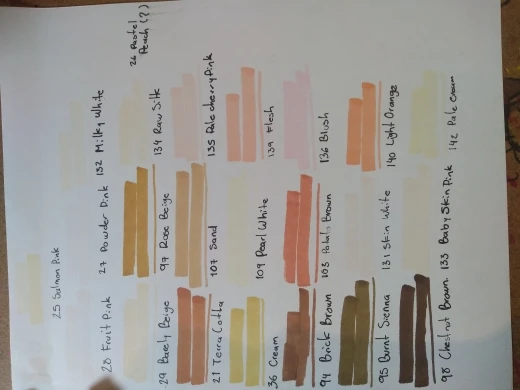 25 Salmon Pink
26 Pastel
Peach (?)
28 Fruit Pink
27 Powder Pink
132 Milky White
29 Barely Beige
97 Rose Beige
134 Raw Silk
21 Terra Cotta
107 Sand
135 Pale cherry Pink
36 Cream
109 Pearl White
139 Flesh
94 Brick Brown
103 Potato Brown
136 Blush
95 Burnt Sienna
131 Skin White
140 Light Orange
98 Chestnut Brown
133 Baby Skin Pink
142 Pale Cream